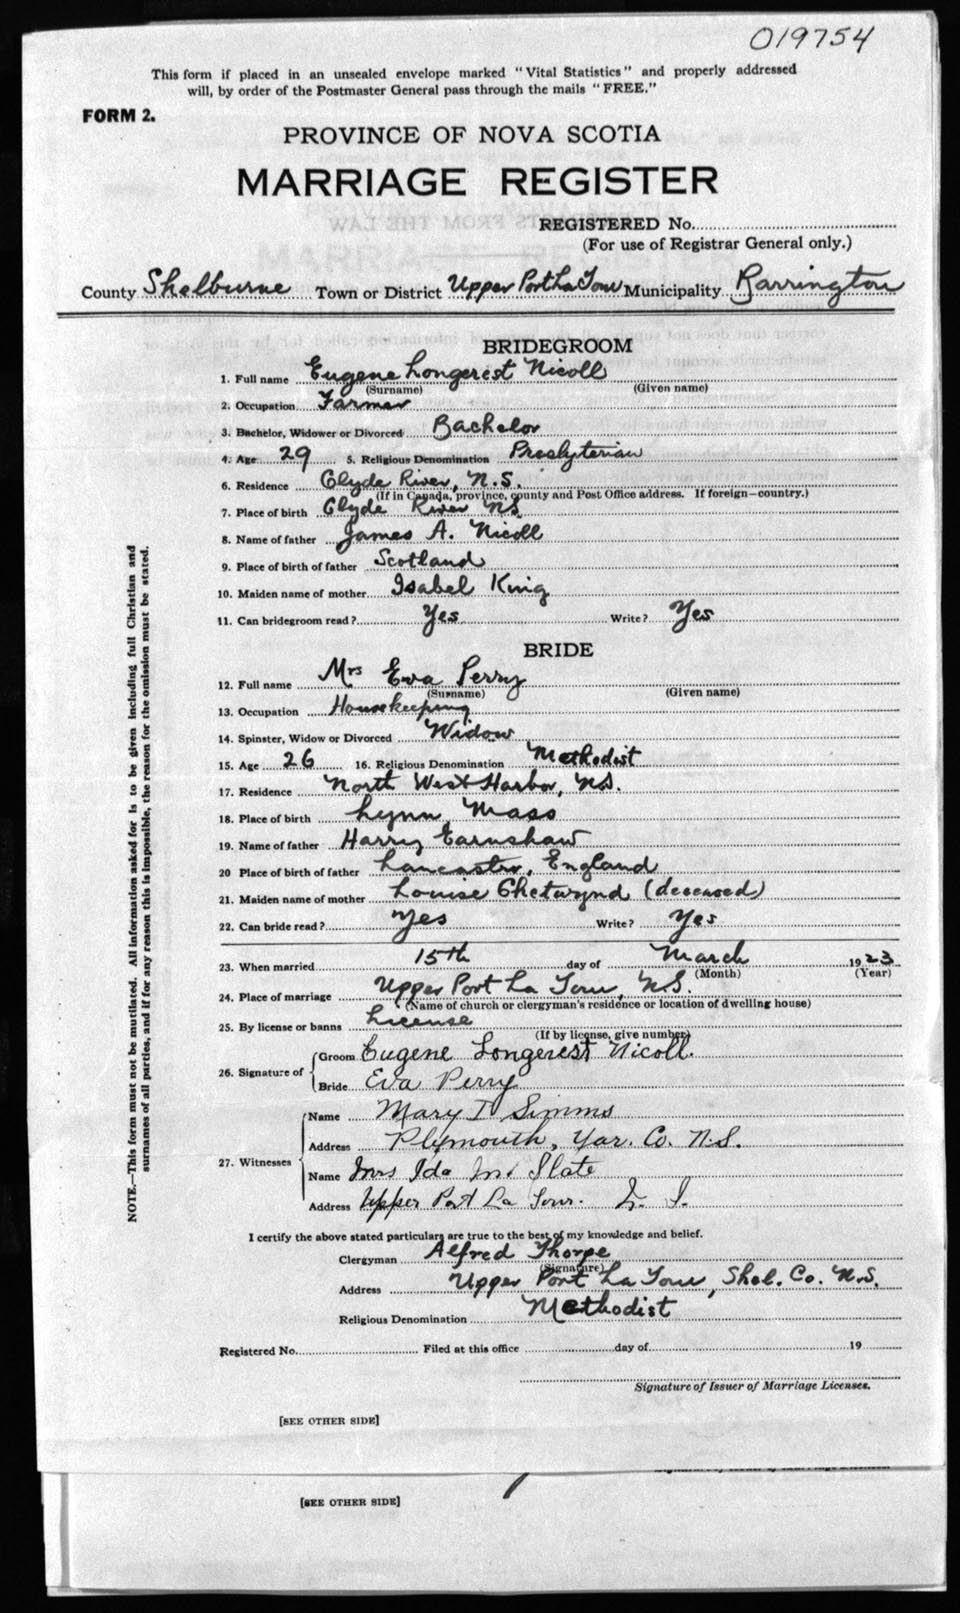 019754
This form if placed in an unsealed envelope marked "Vital Statistics" and properly addressed
will, by order of the Postmaster General pass through the mails "FREE."
FORM 2.
PROVINCE OF NOVA SCOTIA
MARRIAGE REGISTER
REGISTERED No.
(For use of Registrar General only.)
County Shelburne Town or District Upper Port La Tour Municipality Barrington
BRIDEGROOM
1. Full name Eugene Longerest Nicoll
(Surname) (Given name)
2. Occupation Farmer
3. Bachelor, Widower or Divorced Bachelor
4. Age 29 5. Religious Denomination Presbyterian
6. Residence Clyde River, N.S.
(If in Canada, province, county and Post Office address. If foreign—country.)
7. Place of birth Clyde River NS
8. Name of father James A. Nicoll
9. Place of birth of father Scotland
10. Maiden name of mother Isabel King
11. Can bridegroom read? Yes Write? Yes
BRIDE
12. Full name Mrs Eva Perry
(Surname) (Given name)
13. Occupation Housekeeping
14. Spinster, Widow or Divorced Widow
15. Age 26 16. Religious Denomination Methodist
17. Residence North West Harbor, N.S.
18. Place of birth Lynn, Mass
19. Name of father Harry Earnshaw
20 Place of birth of father Lancaster, England
21. Maiden name of mother Louise Chetwynd (deceased)
22. Can bride read? Yes Write? Yes
23. When married 15th day of March 1923
(Month) (Year)
24. Place of marriage Upper Port La Tour, N.S.
(Name of church or clergyman's residence or location of dwelling house)
25. By license or banns License
(If by license, give number)
26. Signature of Groom Eugene Longerest Nicoll.
Bride Eva Perry
27. Witnesses Name Mary I Simms
Address Plymouth, Yar. Co. N.S.
Name Mrs Ida M. Slate
Address Upper Port La Tour. N. S.
I certify the above stated particulars are true to the best of my knowledge and belief.
Clergyman Alfred Thorpe
(Signature)
Address Upper Port La Tour, Shel. Co. N.S.
Religious Denomination Methodist
Registered No. Filed at this office day of 19
Signature of Issuer of Marriage Licenses.
[SEE OTHER SIDE]
[SEE OTHER SIDE]
NOTE.—This form must not be mutilated. All information asked for is to be given including full Christian and
surnames of all parties, and if for any reason this is impossible, the reason for the omission must be stated.